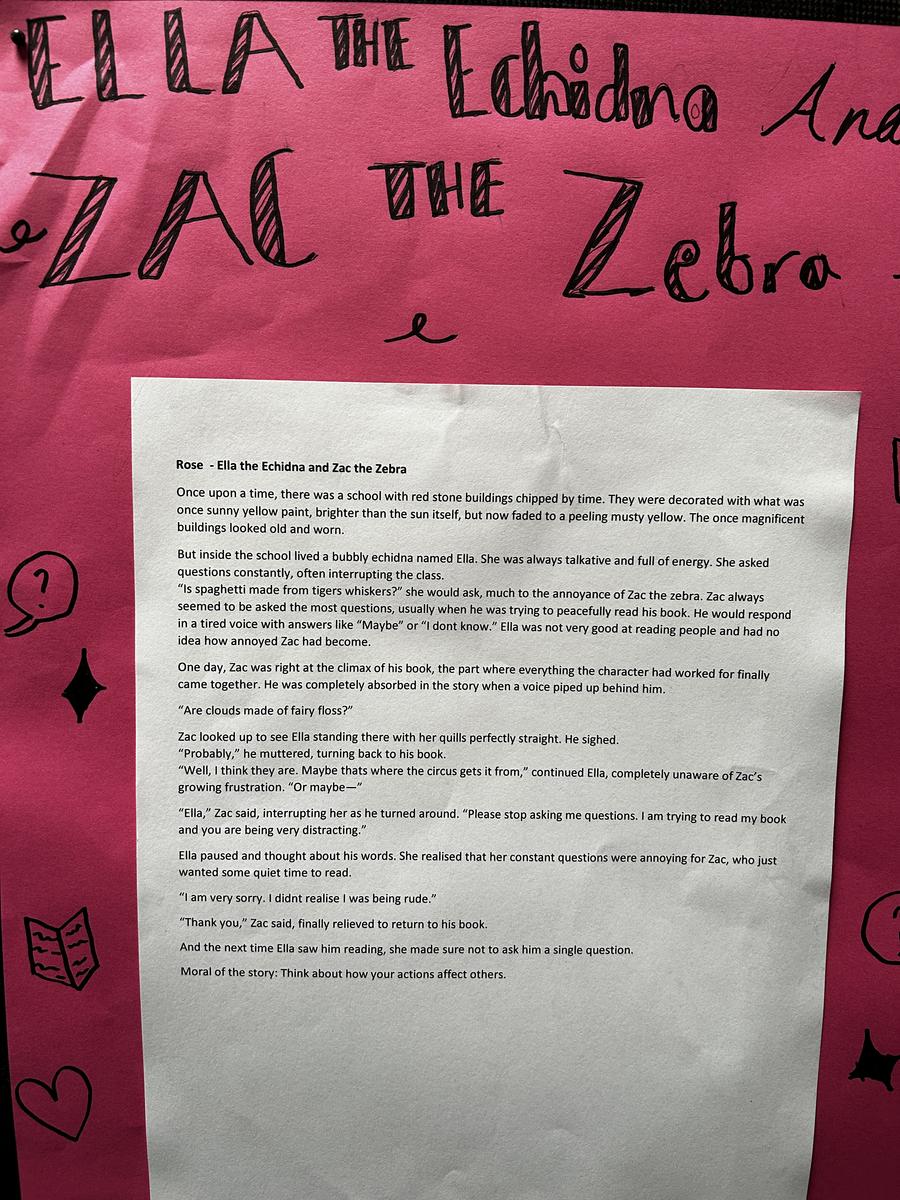 ELLA THE Echidna And
ZAC THE Zebra
Rose - Ella the Echidna and Zac the Zebra
Once upon a time, there was a school with red stone buildings chipped by time. They were decorated with what was
once sunny yellow paint, brighter than the sun itself, but now faded to a peeling musty yellow. The once magnificent
buildings looked old and worn.
But inside the school lived a bubbly echidna named Ella. She was always talkative and full of energy. She asked
questions constantly, often interrupting the class.
“Is spaghetti made from tigers whiskers?” she would ask, much to the annoyance of Zac the zebra. Zac always
seemed to be asked the most questions, usually when he was trying to peacefully read his book. He would respond
in a tired voice with answers like “Maybe” or “I dont know.” Ella was not very good at reading people and had no
idea how annoyed Zac had become.
One day, Zac was right at the climax of his book, the part where everything the character had worked for finally
came together. He was completely absorbed in the story when a voice piped up behind him.
“Are clouds made of fairy floss?”
Zac looked up to see Ella standing there with her quills perfectly straight. He sighed.
“Probably,” he muttered, turning back to his book.
“Well, I think they are. Maybe thats where the circus gets it from,” continued Ella, completely unaware of Zac’s
growing frustration. “Or maybe—”
“Ella,” Zac said, interrupting her as he turned around. “Please stop asking me questions. I am trying to read my book
and you are being very distracting.”
Ella paused and thought about his words. She realised that her constant questions were annoying for Zac, who just
wanted some quiet time to read.
“I am very sorry. I didnt realise I was being rude.”
“Thank you,” Zac said, finally relieved to return to his book.
And the next time Ella saw him reading, she made sure not to ask him a single question.
Moral of the story: Think about how your actions affect others.
?
?